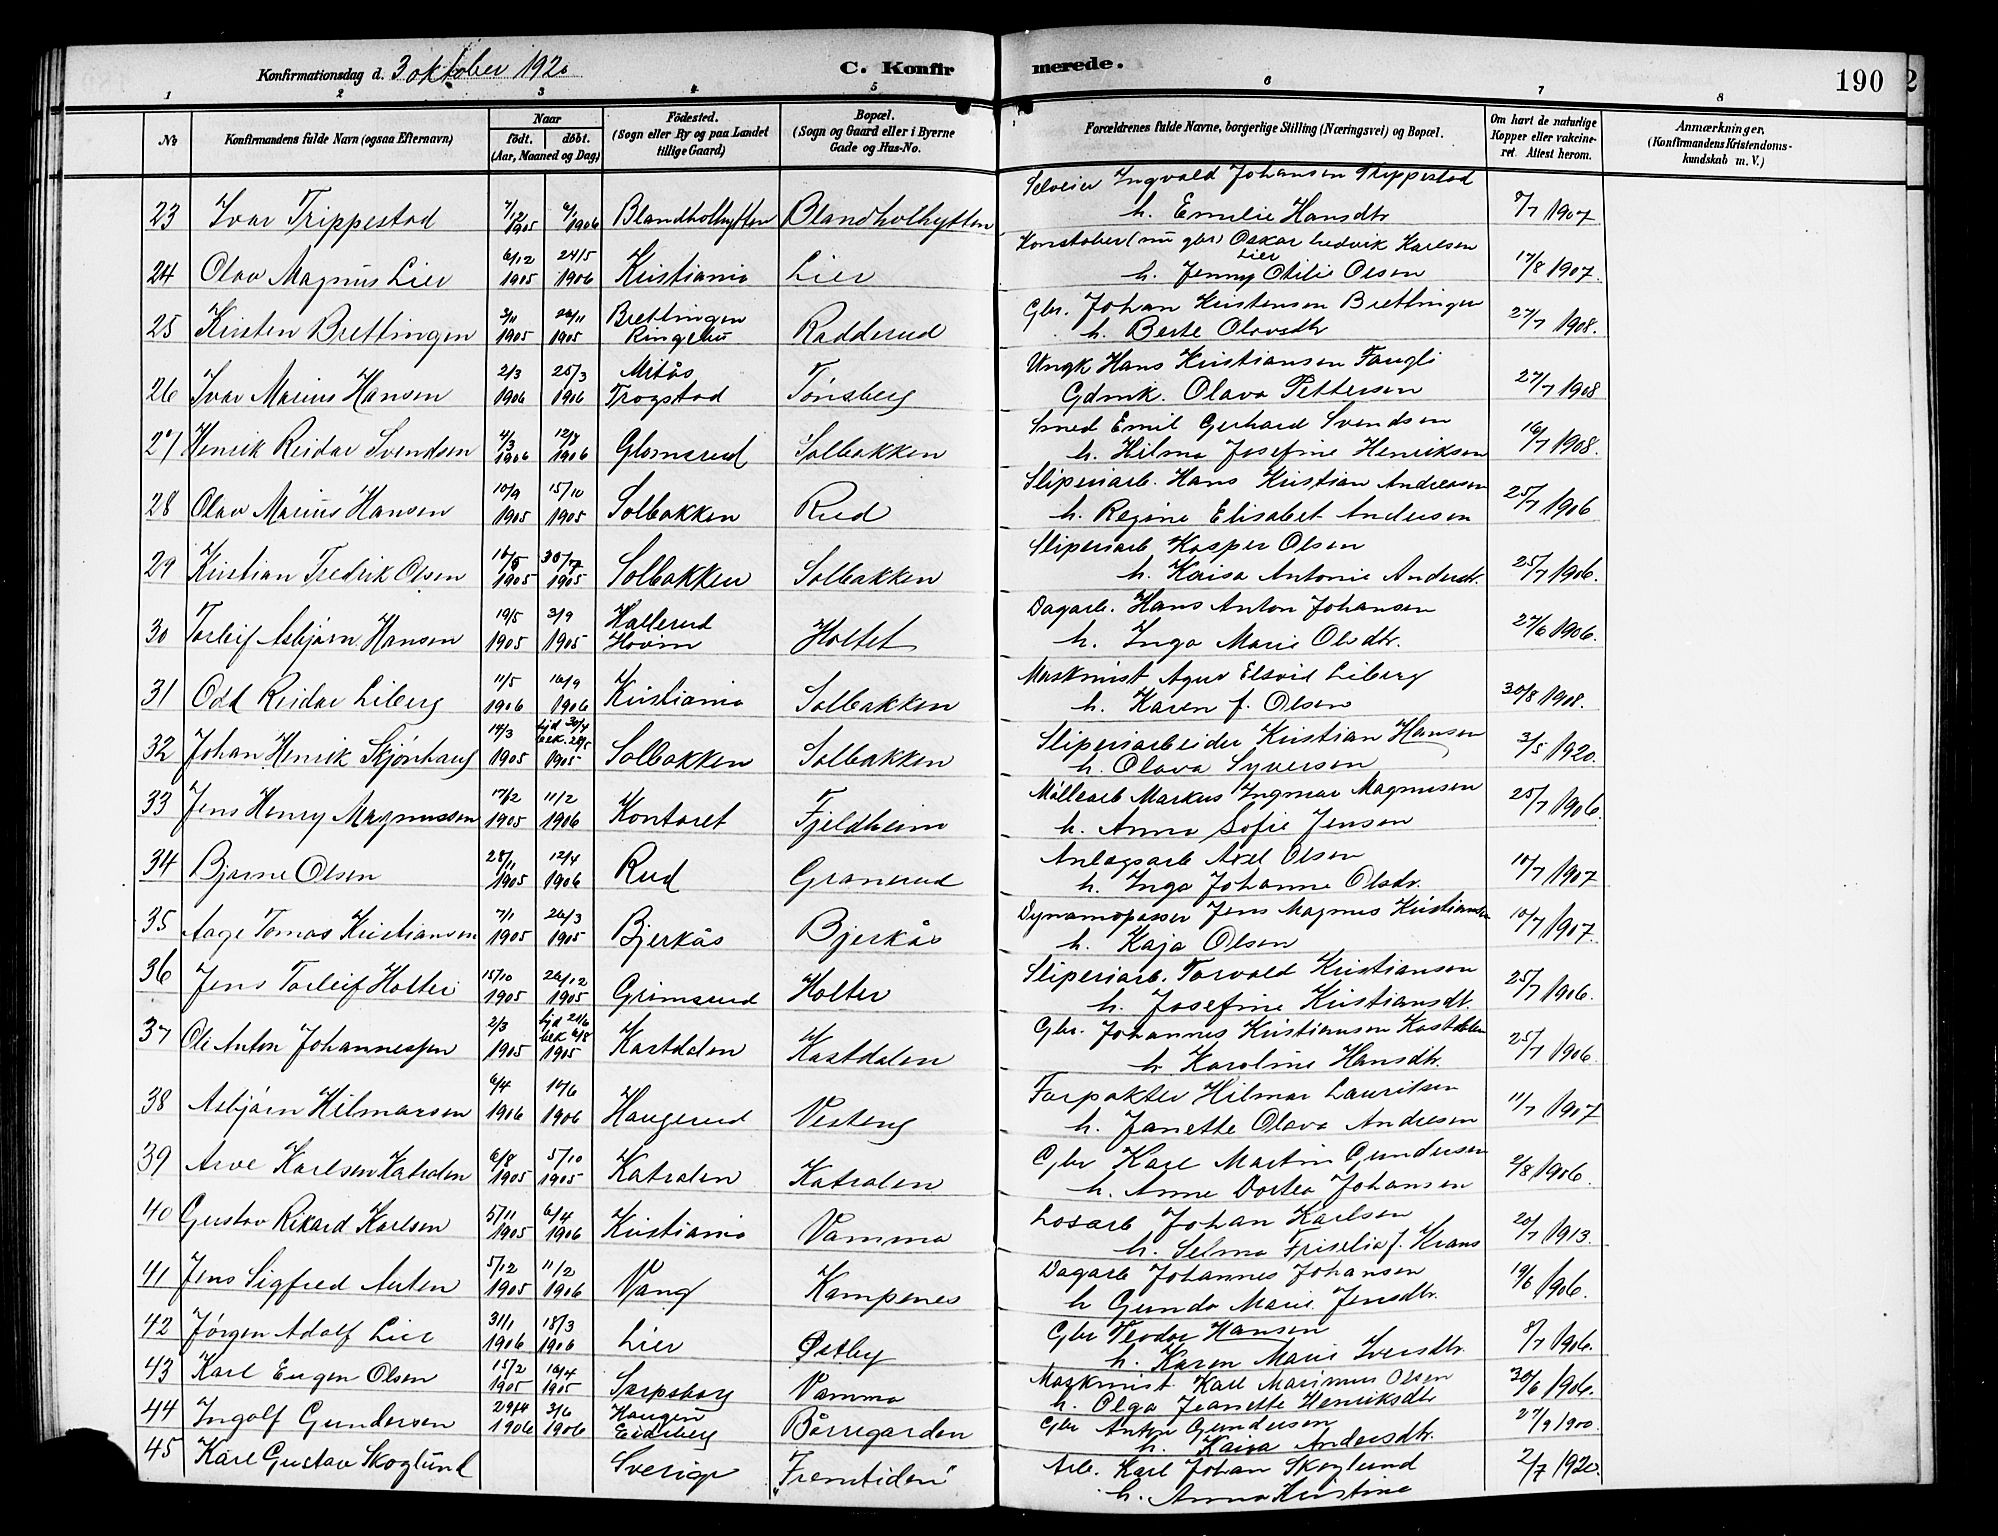 Konfirmationsdag d. 3 oktober 1920
C. Konfir merede.
190
1 2 3 4 5 6 7 8
No
Konfirmandens fulde Navn (ogsaa Efternavn)
Naar
født. døbt.
(Aar, Maaned og Dag)
Fødested.
(Sogn eller By og paa Landet tillige Gaard)
Bopæl.
(Sogn og Gaard eller i Byerne Gade og Hus-No.
Forældrenes fulde Navne, borgerlige Stilling (Næringsvei) og Bopæl.
Om havt de naturlige Kopper eller vakcineret. Attest herom.
Anmærkninger.
(Konfirmandens Kristendomskundskab m. V.)
23 Ivar Trippestad 7/12 1905 6/ 1906 Blandholhytten Blandholhytten Selveier Ingvald Johansen Trippestad
h. Emilie Hansdtr 7/7 1907
24 Olav Magnus Lier 6/12 1905 24/5 1906 Kristiania Lier Konstabel (nu gbr) Oskar Ludvik Karlsen Lier
h. Jenny Otilie Olsen 17/8 1907.
25 Kirsten Brettingen 3/11 1905 26/11 1905 Brettingen Ringebu Radderud Gbr. Johan Kristensen Brettingen
h. Berte Olavsdtr 27/7 1908.
26 Ivar Marius Hansen 2/3 1906 25/3 1906 Mitås Trøgstad Tønsberg Ungk Hans Kristiansen Faugli
Gdmk. Olava Pettersen 27/7 1908
27 Henrik Reidar Svendsen 4/3 1906 12/8 1906 Glomsrud Solbakken Smed Emil Gerhard Svendsen
h. Hilma Josefine Henriksen 16/7 1908.
28 Olav Marius Hansen 10/9 1905 15/10 1905 Solbakken Rud Sliperiarb. Hans Kristian Andreasen
h. Regine Elisabet Andersen 25/7 1906
29 Kristian Fredrik Olsen 10/5 1905 30/7 1905 Solbakken Solbakken Sliperiarb Kasper Olsen
h. Kaisa Antonie Andersdtr. 25/7 1906.
30 Torleif Asbjørn Hansen 19/5 1905 3/9 1905 Hallerud Hovin Holtet Dagarb. Hans Anton Johansen
h. Inga Marie Olsdtr. 27/6 1906.
31 Odd Reidar Liberg 11/5 1906 16/9 1906 Kristiania Solbakken Maskinist Liberg
h. Karen f. Olsen 30/8 1908.
32 Johan Henrik Skjønhaug 14/3 1905 hjd 30/4 bek. 28/5 1905 Solbakken Solbakken Sliperiarbeider Kristian Hansen
h. Olava Syversen 3/5 1920.
33 Jens Henry Magnussen 17/12 1905 11/2 1906 Kontoret Fjeldheim Møllearb Markus Ingmar Magnusen
h. Anna Sofie Jensen 25/7 1906.
34 Bjarne Olsen 28/11 1905 12/4 1906 Rud Granerud Anlægsarb Axel Olsen
h. Inga Johanne Olsdr. 10/7 1907
35 Aage Tomas Kristiansen 7/1 1905 26/3 1905 Bjerkås Bjerkås Dynamopasser Jens Magnus Kristiansen
h. Kaja Olsen 10/7 1907.
36 Jens Torleif Holter 15/10 1905 26/12 1905 Grimsrud Holter Sliperiarb. Torvald Kristiansen
h. Josefine Kristiansdt. 25/7 1906.
37 Ole Anton Johannessen 2/3 1905 hjd 21/6 bek 6/8 1905 Kastdalen Kastdalen Gbr. Johannes Kristiansen Kastdalen
h. Karoline Hansdtr. 25/7 1906.
38 Asbjørn Hilmarsen 6/4 1906 10/6 1906 Haugerud Vesteng Forpakter Hilmar Lauritsen
h. Janette Olava Andresen 11/7 1907
39 Arve Karlsen Katralen 6/8 1905 5/10 1905 Katralen Katralen Gbr Karl Martin Gundersen
h. Anne Dortea Johansen 2/8 1906.
40 Gustav Rikard Karlsen 5/11 1905 6/4 1906 Kristiania Vamma Losarb Johan Karlsen
h. Selma Friselia f. Krans 20/7 1913.
41 Jens Sigfred Anten 5/12 1905 11/2 1906 Vang Kampenes Dagarb Johannes Johansen
h Gunda Marie Jensdtr. 19/6 1906.
42 Jørgen Adolf Lier 31/1 1906 18/3 1906 Lier Østby Gbr Teodor Hansen
h. Karen Marie Iversdtr. 8/7 1906.
43 Karl Eugen Olsen 15/2 1905 16/4 1905 Sarpsborg Vamma Maskinist Karl Marinus Olsen
h. Olga Jeanette Henriksdtr 30/6 1906.
44 Ingolf Gundersen 29/4 1906 3/6 1906 Haugen Eidsberg Børregarden Gbr Anton Gundersen
h. Kaisa Andersdtr. 27/9 1900.
45 Karl Gustav Skoglund Sverige "Fremtiden" Arb. Karl Johan Skoglund
h. Anna Kristine 2/7 1920.